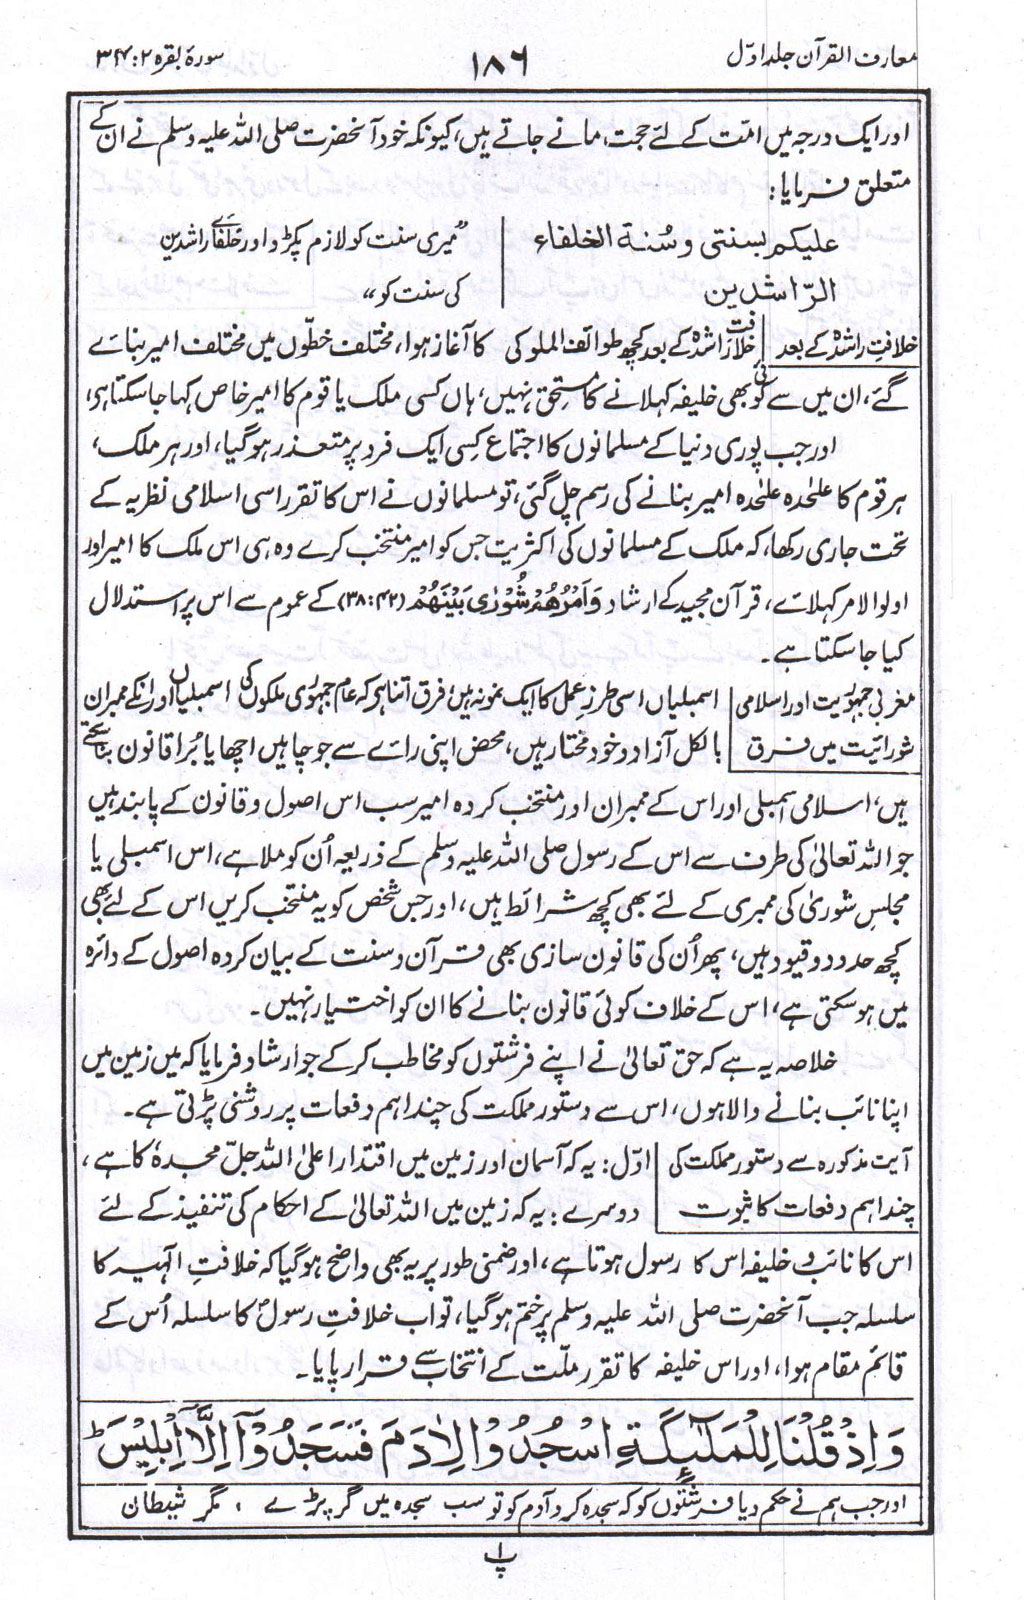 معارف القرآن جلد اوّل
۱۸۶
سورۂ بقرہ ۲ : ۳۴
اور ایک درجہ میں امّت کے لئے حجت، مانے جاتے ہیں، کیونکہ خود آنحضرت صلی اللہ علیہ وسلم نے ان کے
متعلق فرمایا:
علیکم بسنتی وسُنۃ الخلفاء
الرّاشدین
”میری سنت کو لازم پکڑو اور خلفائے راشدین
کی سنت کو“
خلافتِ راشدہ کے بعد
خلافت راشدہ کے بعد کچھ طوائف الملوکی کا آغاز ہوا، مختلف خطّوں میں مختلف امیر بنائے
گئے، ان میں سے کوئی بھی خلیفہ کہلانے کا مستحق نہیں، ہاں کسی ملک یا قوم کا امیر خاص کہا جا سکتا ہی،
اور جب پوری دنیا کے مسلمانوں کا اجتماع کسی ایک فرد پر متعذر ہوگیا، اور ہر ملک،
ہر قوم کا علٰحدہ علٰحدہ امیر بنانے کی رسم چل گئی، تو مسلمانوں نے اس کا تقرر اسی اسلامی نظریہ کے
تحت جاری رکھا، کہ ملک کے مسلمانوں کی اکثریت جس کو امیر منتخب کرے وہ ہی اس ملک کا امیر اور
اولوالامر کہلائے، قرآن مجید کے ارشاد وَاَمْرُهُمْ شُوْرٰى بَيْنَهُمْ (۴۲ : ۳۸) کے عموم سے اس پر استدلال
کیا جا سکتا ہے۔
مغربی جمہوریت اور اسلامی
شورائیت میں فرق
اسمبلیاں اسی طرزِ عمل کا ایک نمونہ ہیں فرق اتنا ہی کہ عام جمہوری ملکوں کی اسمبلیاں اور انکے ممبران
بالکل آزاد و خود مختار ہیں، محض اپنی رائے سے جو چاہیں اچھا یا بُرا قانون بنا سکتے
ہیں، اسلامی اسمبلی اور اس کے ممبران اور منتخب کردہ امیر سب اس اصول و قانون کے پابند ہیں
جو اللہ تعالیٰ کی طرف سے اس کے رسول صلی اللہ علیہ وسلم کے ذریعہ اُن کو ملا ہے، اس اسمبلی یا
مجلسِ شوریٰ کی ممبری کے لئے بھی کچھ شرائط ہیں، اور جس شخص کو یہ منتخب کریں اس کے لئے بھی
کچھ حدود و قیود ہیں، پھر اُن کی قانون سازی بھی قرآن و سنت کے بیان کردہ اصول کے دائرہ
میں ہو سکتی ہے، اس کے خلاف کوئی قانون بنانے کا ان کو اختیار نہیں۔
خلاصہ یہ ہے کہ حق تعالیٰ نے اپنے فرشتوں کو مخاطب کر کے جو ارشاد فرمایا کہ میں زمین میں
اپنا نائب بنانے والا ہوں، اس سے دستور مملکت کی چند اہم دفعات پر روشنی پڑتی ہے۔
آیت مذکورہ سے دستور مملکت کی
چند اہم دفعات کا ثبوت
اوّل : یہ کہ آسمان اور زمین میں اقتدار اعلیٰ اللہ جلّ مجدہٗ کا ہے،
دوسرے : یہ کہ زمین میں اللہ تعالیٰ کے احکام کی تنفیذ کے لئے
اس کا نائب و خلیفہ اس کا رسول ہوتا ہے، اور ضمنی طور پر یہ بھی واضح ہوگیا کہ خلافتِ الٰہیہ کا
سلسلہ جب آنحضرت صلی اللہ علیہ وسلم پر ختم ہوگیا، تو اب خلافتِ رسولؐ کا سلسلہ اُس کے
قائم مقام ہوا، اور اس خلیفہ کا تقرر ملّت کے انتخاب سے قرار پایا۔
وَاِذْ قُلْنَا لِلْمَلٰٓئِكَةِ اسْجُدُوْا لِاٰدَمَ فَسَجَدُوْٓا اِلَّآ اِبْلِيْسَ ؕ
اور جب ہم نے حکم دیا فرشتوں کو کہ سجدہ کرو آدم کو تو سب سجدہ میں گر پڑے ، مگر شیطان
پ ۱